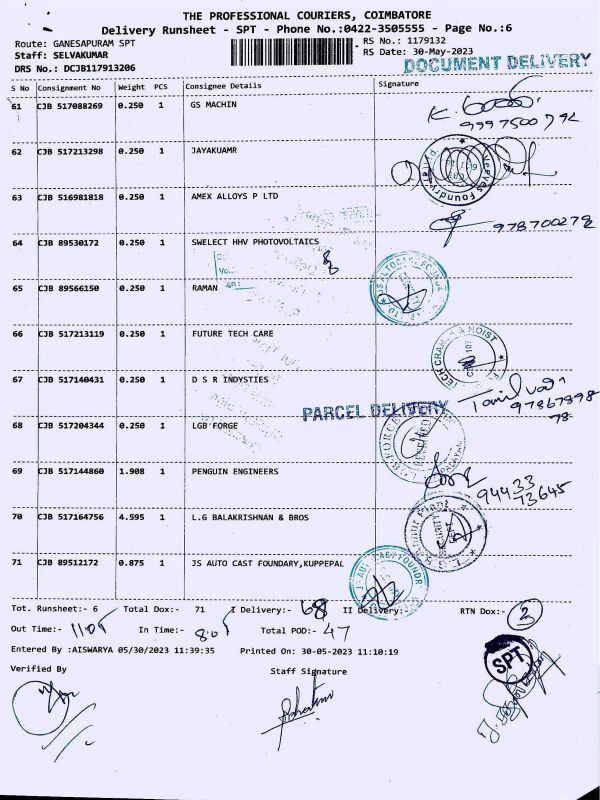 THE PROFESSIONAL COURIERS, COIMBATORE
Delivery Runsheet - SPT - Phone No.:0422-3505555 - Page No.:6
Route: GANESAPURAM SPT
RS No.: 1179132
Staff: SELVAKUMAR
RS Date: 30-May-2023
DRS No.: DCJB117913206
DOCUMENT DELIVERY
S No Consignment No Weight PCS Consignee Details Signature
61 CJB 517088269 0.250 1 GS MACHIN
62 CJB 517213298 0.250 1 JAYAKUAMR
63 CJB 516981818 0.250 1 AMEX ALLOYS P LTD
64 CJB 89530172 0.250 1 SWELECT HHV PHOTOVOLTAICS
65 CJB 89566150 0.250 1 RAMAN
66 CJB 517213119 0.250 1 FUTURE TECH CARE
67 CJB 517140431 0.250 1 D S R INDYSTIES
PARCEL DELIVERY
68 CJB 517204344 0.250 1 LGB FORGE
69 CJB 517144860 1.908 1 PENGUIN ENGINEERS
94433
13645
70 CJB 517164756 4.595 1 L.G BALAKRISHNAN & BROS
71 CJB 89512172 0.875 1 JS AUTO CAST FOUNDARY,KUPPEPAL
Tot. Runsheet:- 6 Total Dox:- 71 I Delivery:- 68 II Delivery:- RTN Dox:- 3
Out Time:- 11.05 In Time:- 8.05 Total POD:- 47
Entered By :AISWARYA 05/30/2023 11:39:35 Printed On: 30-05-2023 11:10:19
SPT
Verified By Staff Signature